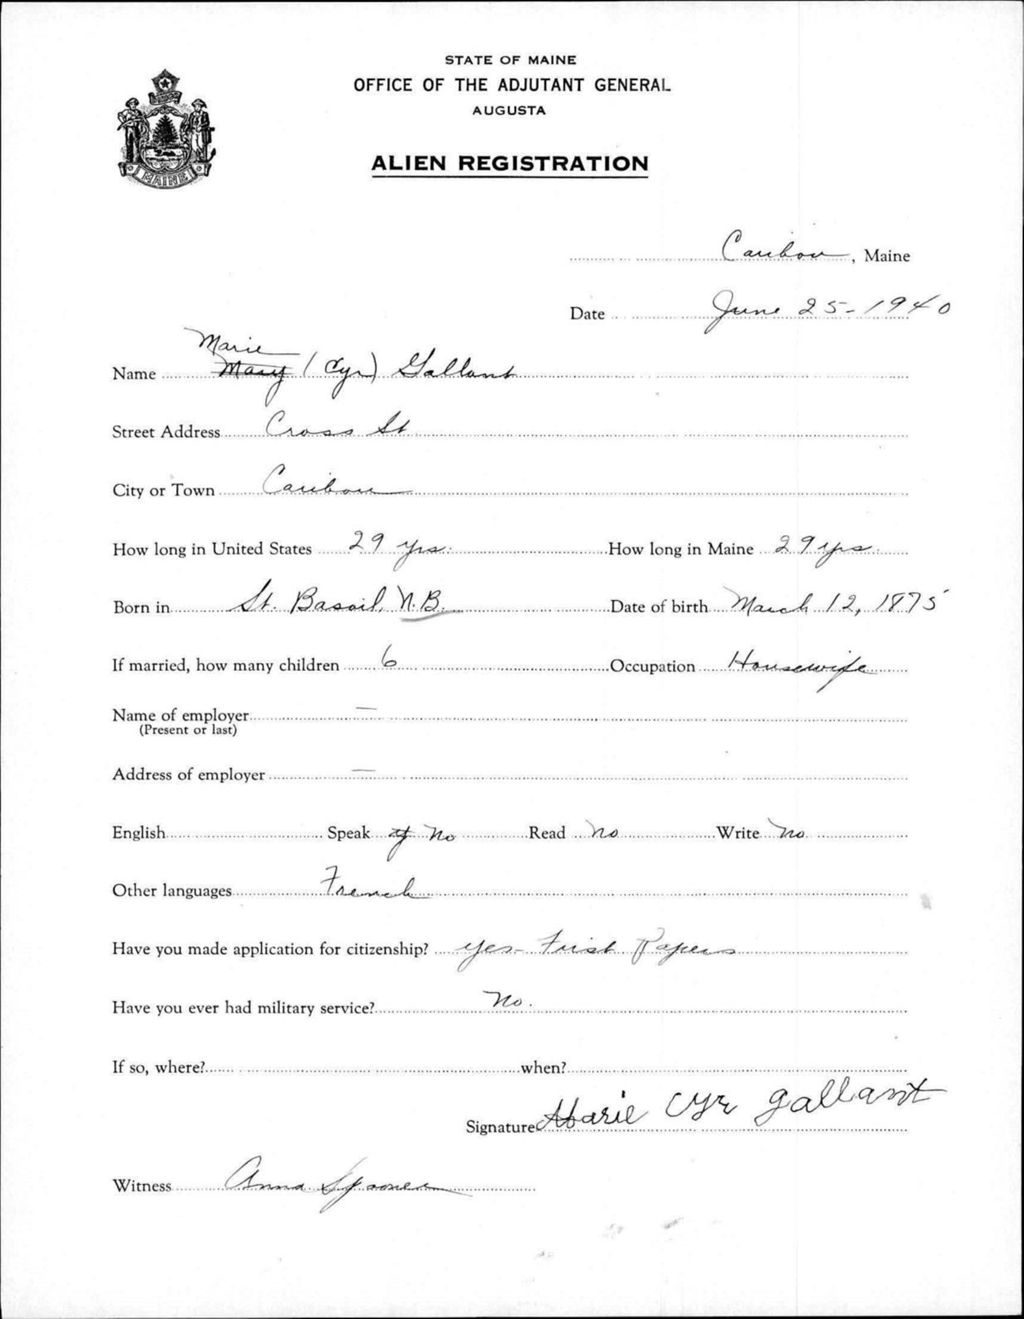 STATE OF MAINE
OFFICE OF THE ADJUTANT GENERAL
AUGUSTA
MAINE
ALIEN REGISTRATION
Caribou, Maine
Date June 25-1940
Marie
Name Mary (Cyr) Gallant
Street Address Cross St
City or Town Caribou
How long in United States 29 yrs. How long in Maine 29 yrs.
Born in St. Basoil, N.B. Date of birth March 12, 1875
If married, how many children 6 Occupation Housewife
Name of employer —
(Present or last)
Address of employer —
English Speak No Read No Write No
Other languages French
Have you made application for citizenship? yes- First Papers
Have you ever had military service? No.
If so, where? when?
Signature Marie Cyr gallant
Witness Anna